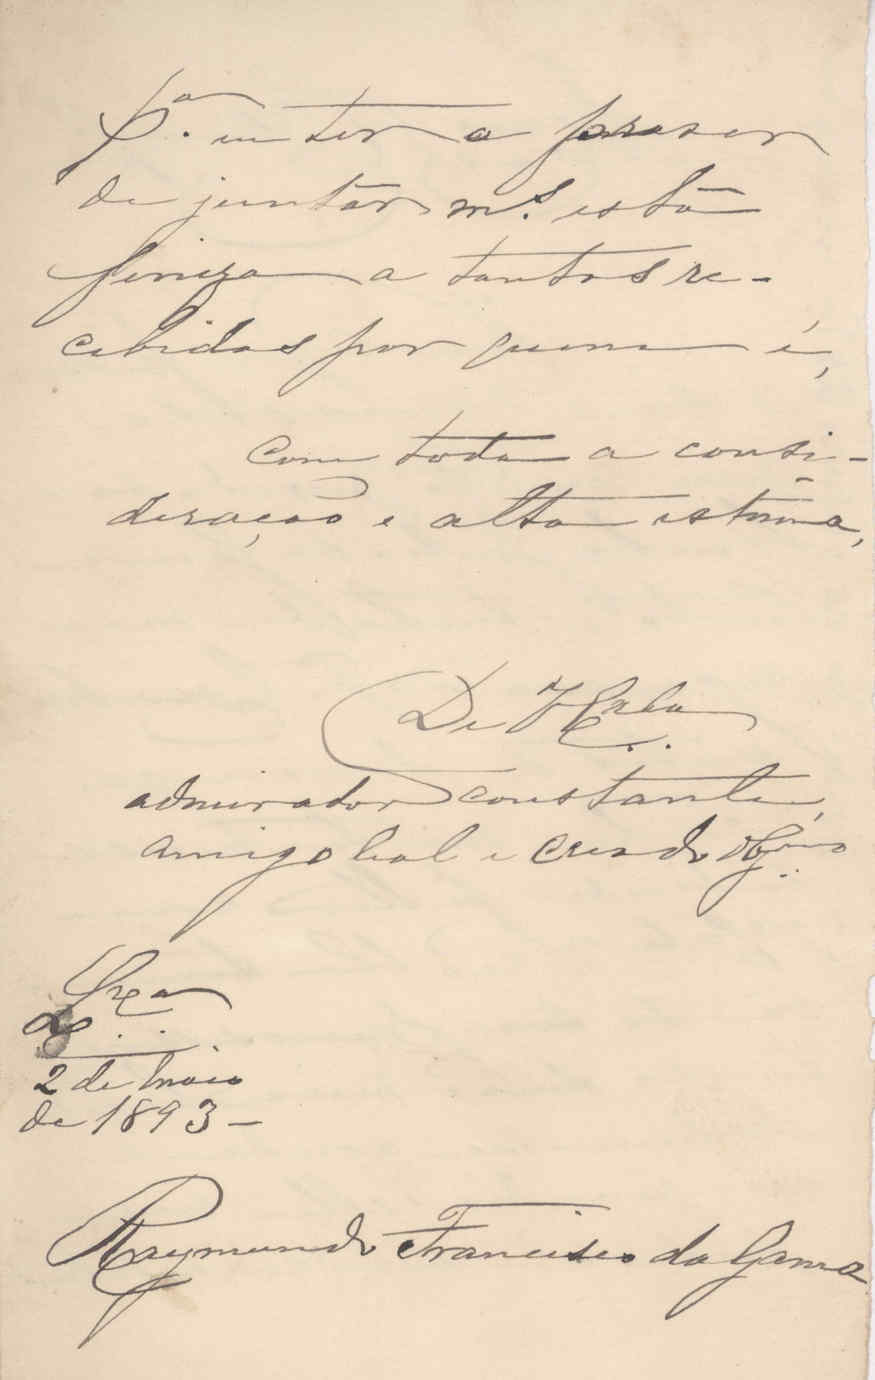 Pª. eu ter o praser
de juntar m.s está
fineza a tantos re-
cebidas por quem é,
com toda a consi-
deração e alta estima,
De V Excia
admirador constante,
amigo leal e creado obg.mo
2 de Maio
de 1893 –
Raymundo Francisco da Gama